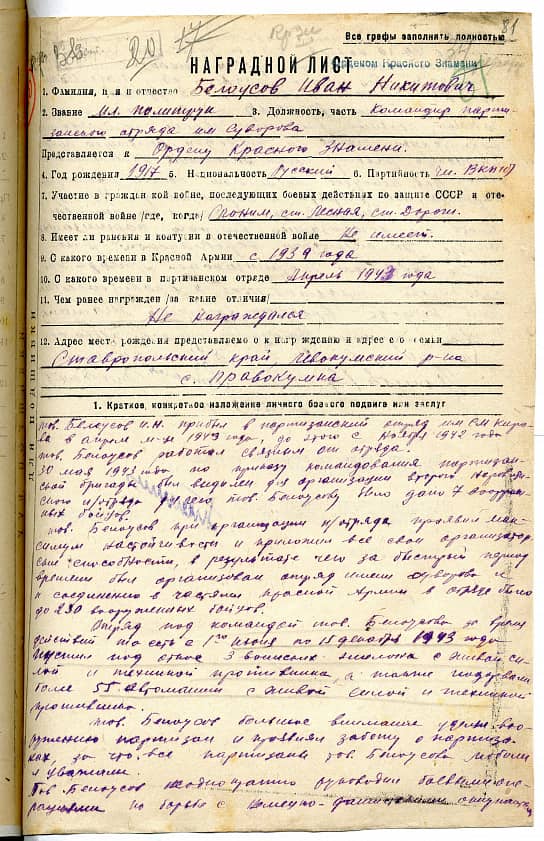 Все графы заполнить полностью
81
НАГРАДНОЙ ЛИСТ
Орденом Красного Знамени
1. Фамилия, имя и отчество Белоусов Иван Никитович
2. Звание мл. политрук 3. Должность, часть Командир парти-
занского отряда им Суворова
Представляется к Ордену Красного Знамени.
4. Год рождения 1917 5. Национальность Русский 6. Партийность чл. ВКП(б)
7. Участие в гражданской войне, последующих боевых действиях по защите СССР и оте-
чественной войне /где, когда/ Слоним, ст. Лесная, ст. Дороги.
8. Имеет ли ранения и контузии в отечественной войне Не имеет.
9. С какого времени в Красной Армии с 1939 года
10. С какого времени в партизанском отряде Апрель 1943 года
11. Чем ранее награжден /за какие отличия/
Не награждался
12. Адрес места рождения представляемого к награждению и адрес его семьи
Ставропольский край Левокумский р-на
с. Правокумка
1. Краткое, конкретное изложение личного боевого подвига или заслуг
тов. Белоусов И.Н. прибыл в партизанский отряд им С.М. Киро-
ва в апреле м-це 1943 года, до этого с Ноября 1942 года
тов. Белоусов работал связным от отряда.
30 мая 1943 года, по приказу командования партизан-
ской бригады был выделен для организации второго
тов. Белоусову было дано 7 вооружен-
ных бойцов.
тов. Белоусов при организации п/отряда проявил мак-
симум настойчивости и приложил все свои организатор-
ские способности, в результате чего за быстрый период
времени был организован отряд имени Суворова и
к соединению в частями Красной Армии в отряде было
до 230 вооруженных бойцов.
Отряд под командой тов. Белоусова за время
действий то есть с 1го июня по 15 декабря 1943 года
пустил под откос 3 воинских эшелона с живой си-
лой и техникой противника, а также подорвали
более 55 автомашин с живой силой и техникой
противника.
тов. Белоусов большое внимание уделял воо-
ружению партизан и проявлял заботу о партиза-
нах, за что все партизаны тов. Белоусова любили
и уважали.
Тов. Белоусов неоднократно руководил боевыми опе-
рациями по борьбе с немецко-фашистскими оккупантами